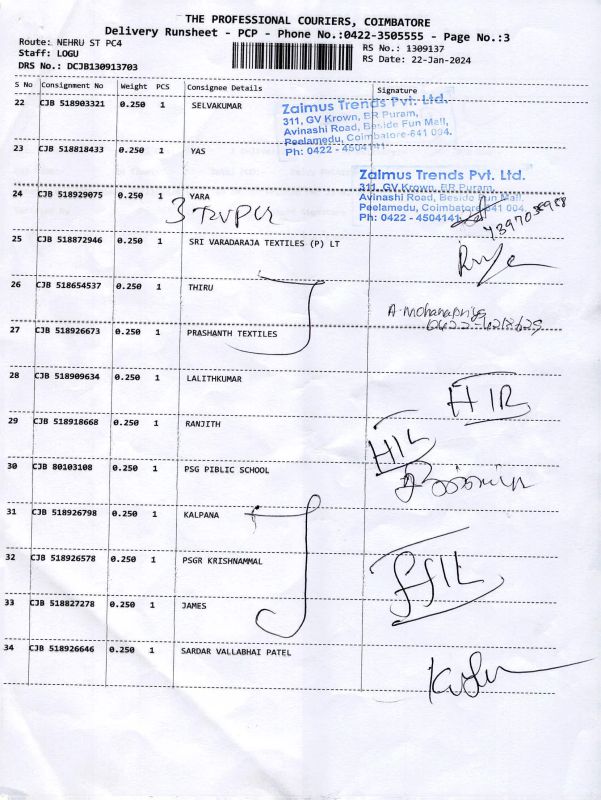 THE PROFESSIONAL COURIERS, COIMBATORE
Delivery Runsheet - PCP - Phone No.:0422-3505555 - Page No.:3
Route: NEHRU ST PC4
RS No.: 1309137
Staff: LOGU
RS Date: 22-Jan-2024
DRS No.: DCJB130913703
S No Consignment No Weight PCS Consignee Details Signature
22 CJB 518903321 0.250 1 SELVAKUMAR
Zaimus Trends Pvt. Ltd.
311, GV Krown, BR Puram,
Avinashi Road, Beside Fun Mall,
Peelamedu, Coimbatore-641 004.
Ph: 0422 - 4504141
23 CJB 518818433 0.250 1 YAS
Zaimus Trends Pvt. Ltd.
311, GV Krown, BR Puram,
Avinashi Road, Beside Fun Mall,
Peelamedu, Coimbatore-641 004.
Ph: 0422 - 4504141
24 CJB 518929075 0.250 1 YARA
3
25 CJB 518872946 0.250 1 SRI VARADARAJA TEXTILES (P) LT
26 CJB 518654537 0.250 1 THIRU
A. Mohanapriya
27 CJB 518926673 0.250 1 PRASHANTH TEXTILES
28 CJB 518909634 0.250 1 LALITHKUMAR
29 CJB 518918668 0.250 1 RANJITH
30 CJB 80103108 0.250 1 PSG PIBLIC SCHOOL
31 CJB 518926798 0.250 1 KALPANA
32 CJB 518926578 0.250 1 PSGR KRISHNAMMAL
33 CJB 518827278 0.250 1 JAMES
34 CJB 518926646 0.250 1 SARDAR VALLABHAI PATEL